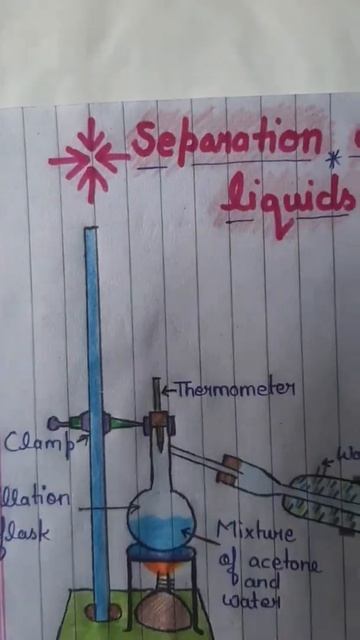 Separation
liquids
Thermometer
Clamp
Wa
llation
flask
Mixture
of acetone
and
water